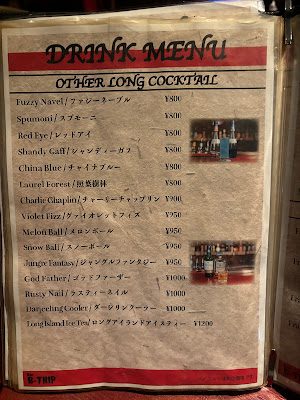 DRINK MENU
OTHER LONG COCKTAIL
Fuzzy Navel / ファジーネーブル ¥800
Spumoni / スプモーニ ¥800
Red Eye / レッドアイ ¥800
Shandy Gaff / シャンディーガフ ¥800
China Blue / チャイナブルー ¥800
Laurel Forest / 照葉樹林 ¥800
Charlie Chaplin / チャーリーチャップリン ¥900
Violet Fizz / ヴァイオレットフィズ ¥950
Melon Ball / メロンボール ¥950
Snow Ball / スノーボール ¥950
Jungle Fantasy / ジャングルファンタジー ¥950
God Father / ゴッドファーザー ¥1000
Rusty Nail / ラスティーネイル ¥1000
Darjeeling Cooler / ダージリンクーラー ¥1000
Long Island Ice Tea / ロングアイランドアイスティー ¥1200
G-TRIP